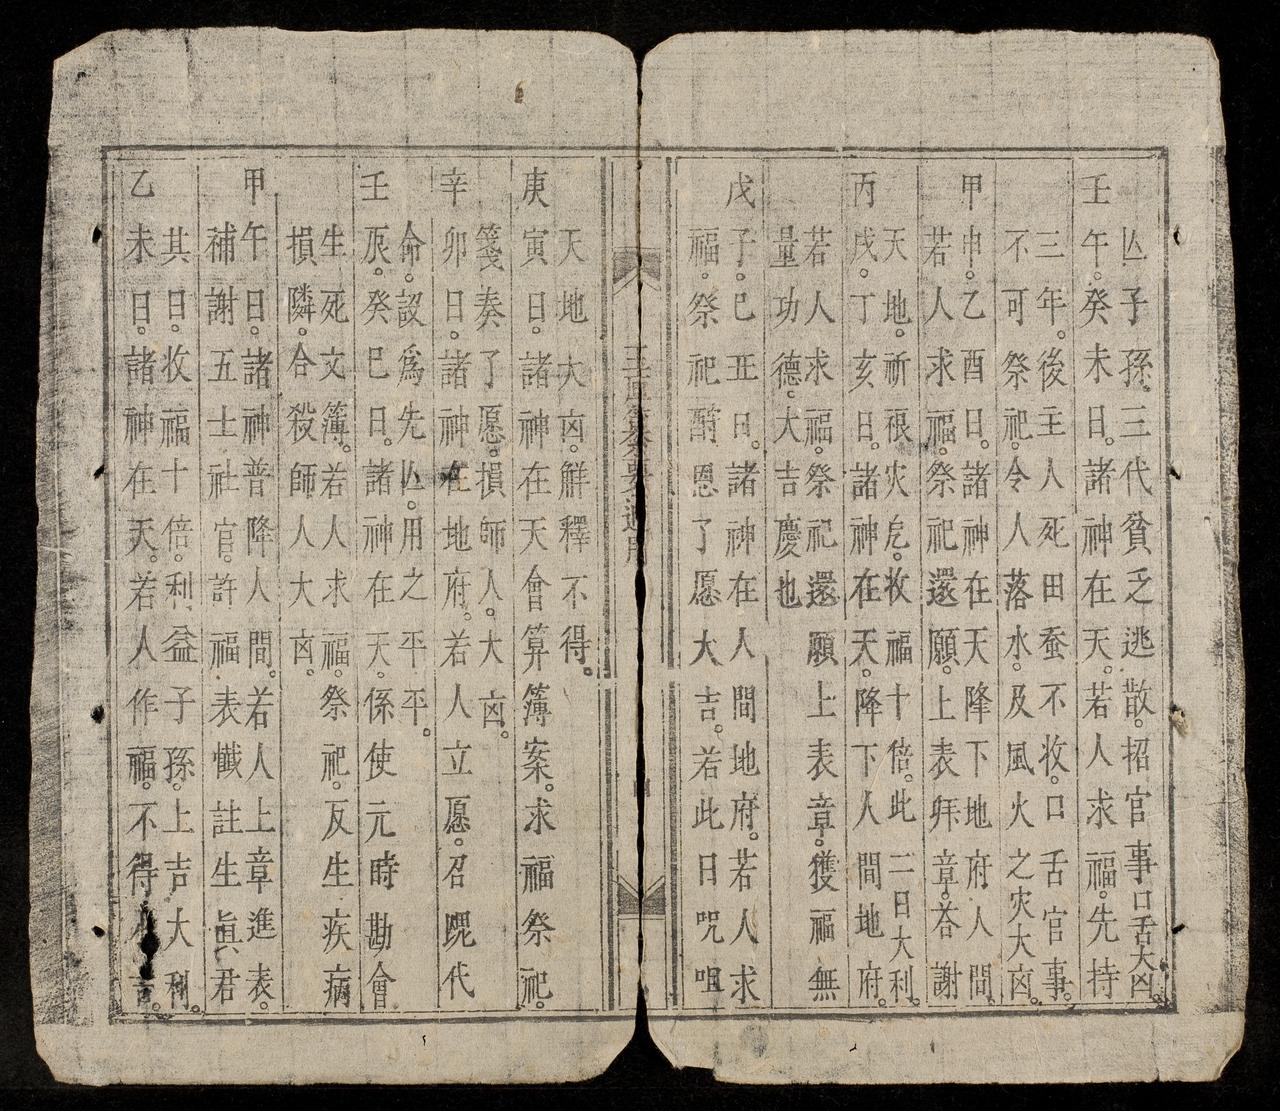 亾子孫三代貧乏逃散招官事口舌大凶
壬午癸未日諸神在天若人求福先持
三年後主人死田蚕不收口舌官事
不可祭祀令人落水及風火之灾大凶
甲申乙酉日諸神在天降下地府人間
若人求福祭祀還願上表拜章荅謝
天地祈禳灾危收福十倍此二日大利
丙戌丁亥日諸神在天降下人間地府
若人求福祭祀還願上表章獲福無
量功德大吉慶也
戊子己丑日諸神在人間地府若人求
福祭祀酧恩了愿大吉若此日咒咀
天地大凶觧釋不得
庚寅日諸神在天會算簿案求福祭祀
箋奏了愿損師人大凶
辛卯日諸神在地府若人立愿召毘代
命設爲先亾用之平平
壬辰癸巳日諸神在天係使元時勘會
生死文簿若人求福祭祀反生疾病
損隣合殺師人大凶
甲午日諸神普降人間若人上章進表
補謝五土社官許福表懴註生眞君
其日收福十倍利益子孫上吉大利
乙未日諸神在天若人作福不得